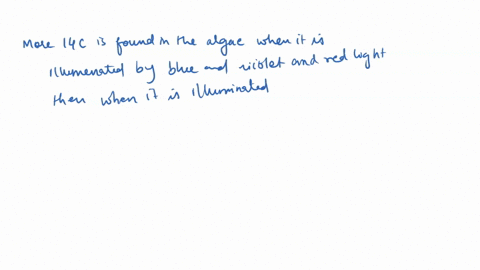 More 14C is found in the algae when it is
illumenated by blue and violet and red light
then when it is illuminated